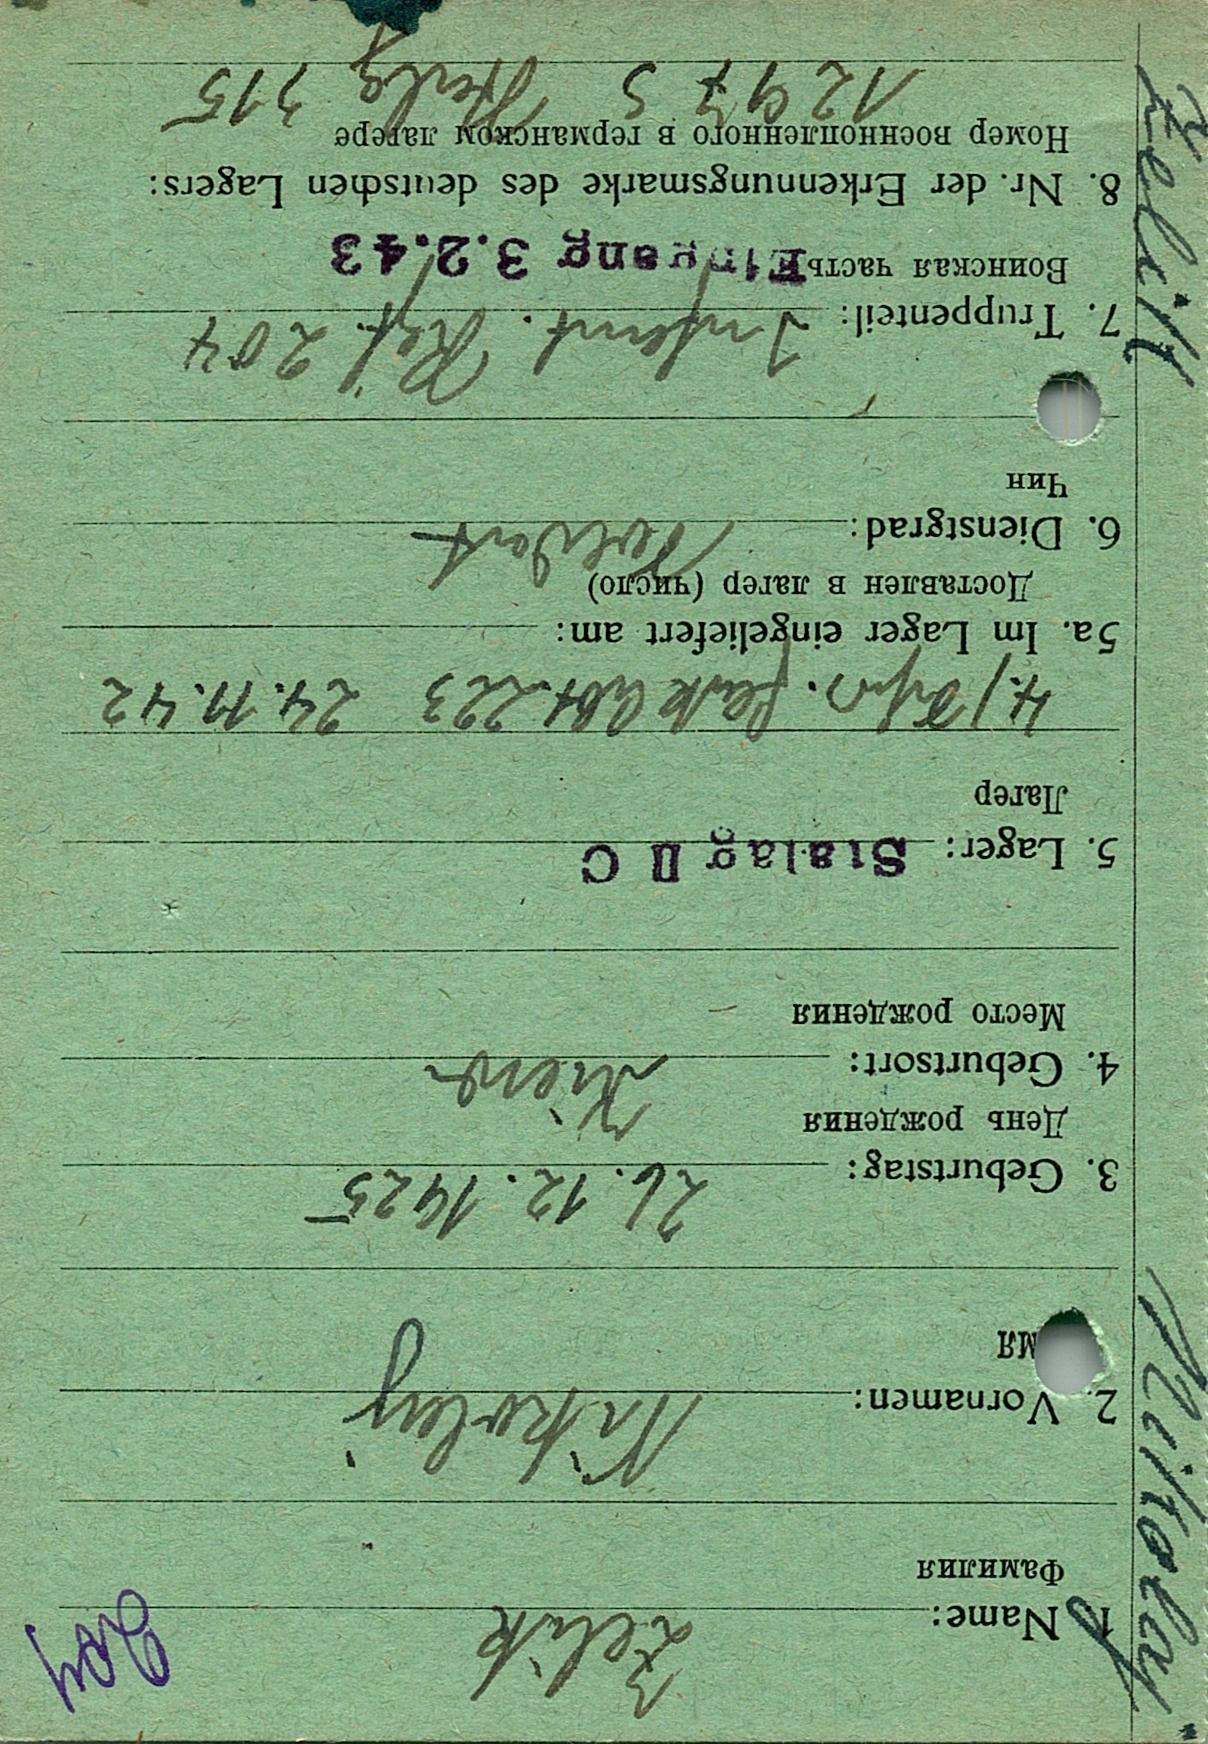 204
1. Name: Zelik
Фамилия
2. Vornamen: Nikolay
мя
3. Geburtstag: 26.12.1925
День рождения
4. Geburtsort: Kiew
Место рождения
5. Lager: Stalag II C
Лагер
223 24.11.42
5a. Im Lager eingeliefert am:
Доставлен в лагер (число)
6. Dienstgrad: Soldat
Чин
7. Truppenteil: Infant. Regt. 204
Воинская часть Eingang 3.2.43
8. Nr. der Erkennungsmarke des deutschen Lagers:
Номер военнопленного в германском лагере
12975 Stalag 315
Zelik Nikolay